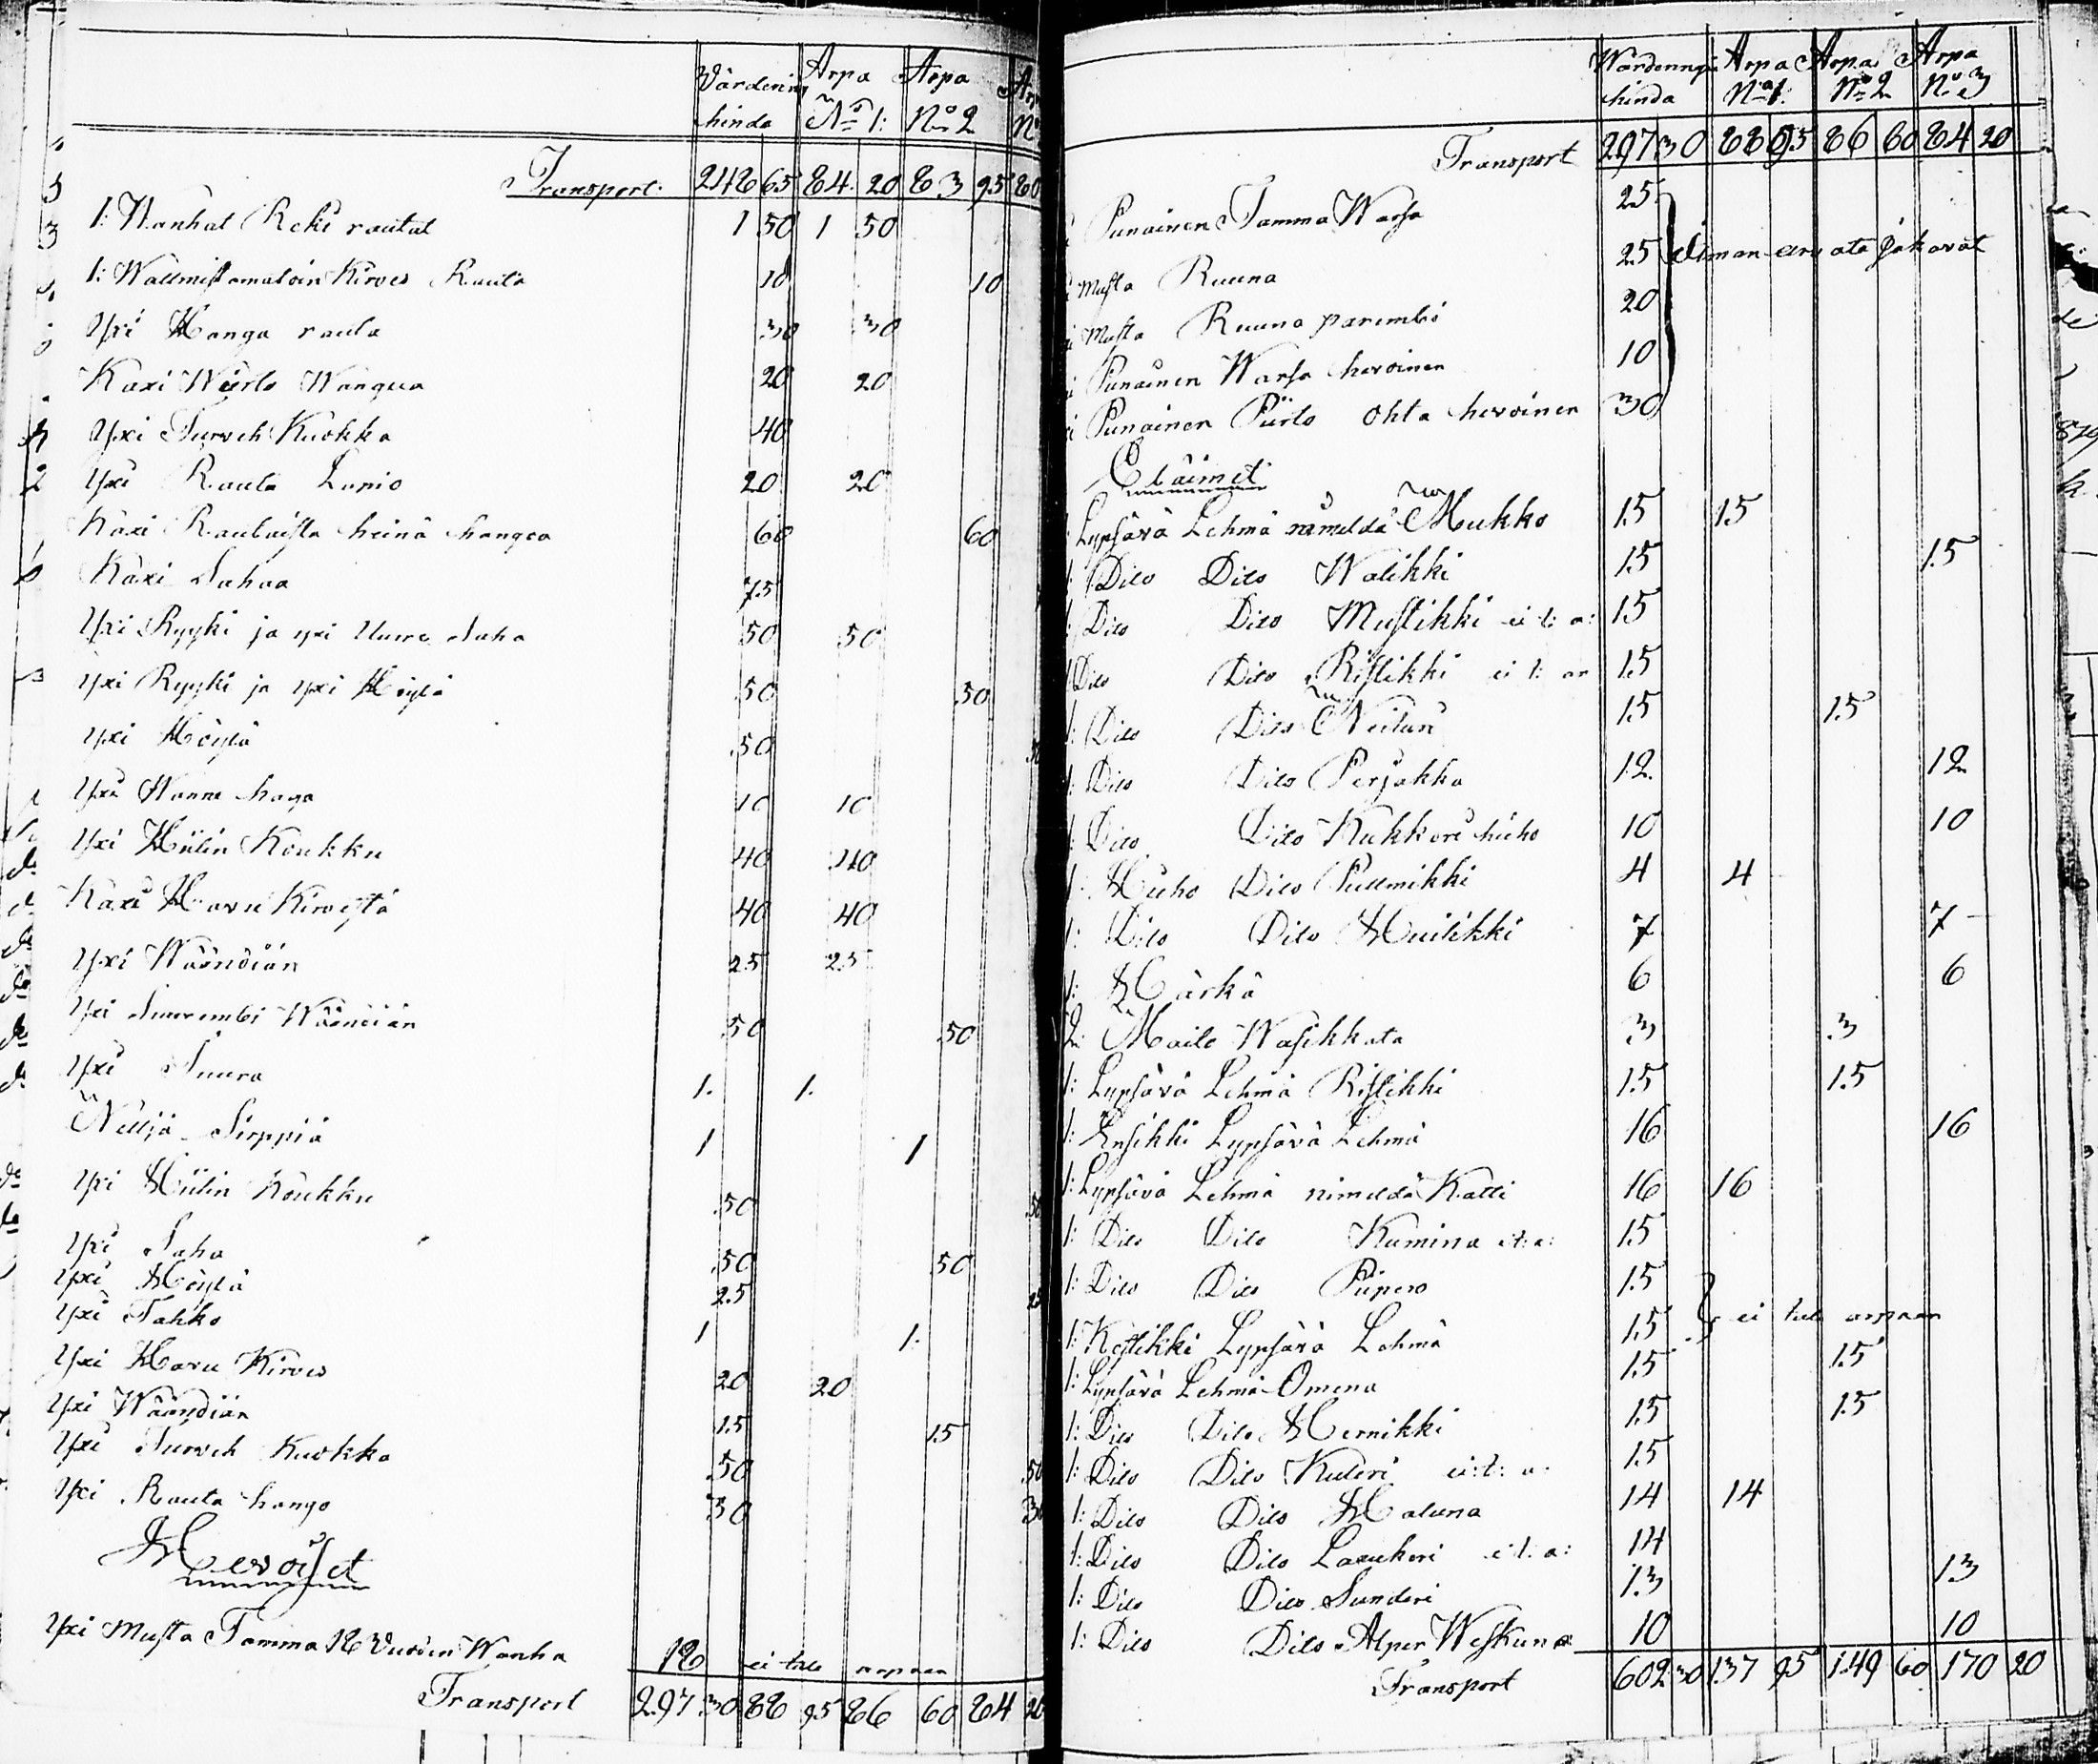 Värdening Arpa Arpa
hinda No 1: No 2
Transport: 248 65 84 20 83 95 80
1: Wanhat Reki rautat 1 50 1 50
1: Wallmistamatoin Kirves Rauta 10 10
Yxi Hanga rauta 30 30
Kaxi Wiirto Wangua 20 20
Yxi Turveh Kuokka 40
Yxi Rauta Lapio 20 20
Kaxi Rautaista heinä hangoa 60 60
Kaxi Sahaa 75
Yxi Ryyki ja yxi Uurre Saha 50 50
Yxi Ryyki ja yxi Höylä 50 50
Yxi Höylä 50
Yxi Wanne haga 10 10
Yxi Hiilin Koukku 40 40
Kaxi Havu Kirvestä 40 40
Yxi Wäändiän 25 25
Yxi Suurembi Wäändiän 50 50
Yxi Tuura 1. 1.
Neljä Sirppiä 1 1
Yxi Hiilin Koukku 50 50
Yxi Saha 50 50
Yxi Höylä 25 25
Yxi Tahko 1 1.
Yxi Havu Kirves 20 20
Yxi Wäändiän 15 15
Yxi Turveh Kuokka 50 50
Yxi Rauta hango 30 30
Hevoiset
Yxi Musta Tamma 18 Vuoden Wanha 18 ei tule arpaan
Transport 297 30 88 95 86 60 84 20
Wärdenngi Arpa Arpa Arpa
hinda No 1: No 2 No 3
Transport 297 30 88 95 86 60 84 20
Punainen Tamma Warsa 25
Musta Ruuna 25 ilman arvata jakavat
Musta Ruuna parembi 20
Punainen Warsa hevoinen 10
Punainen Piirto ohta hevoinen 30
Eläimet
Lypsävä Lehmä nimeldä Mukko 15 15
1: Dito Dito Walikki 15 15
1: Dito Dito Mustikki ei t: a: 15
1: Dito Dito Ristikki ei t: ar 15
1: Dito Dito Neitun 15 15
1: Dito Dito Perjakka 12 12
1: Dito Dito Kukkori hieho 10 10
1: Hieho Dito Pullmikki 4 4
1: Dito Dito Huilikki 7 7
1: Härkä 6 6
2: Maito Wasikkata 3 3
1: Lypsävä Lehmä Ristikki 15 15
1: Ensikki Lypsävä Lehmä 16 16
1: Lypsävä Lehmä nimeldä Katti 16 16
1: Dito Dito Kumina e: t: a: 15
1: Dito Dito Piipero 15
1: Kestikki Lypsävä Lehmä 15 ei tule arpaan
1: Lypsävä Lehmä Omena 15 15
1: Dito Dito Hernikki 15 15
1: Dito Dito Kuteri ei: t: a: 15
1: Dito Dito Haluna 14 14
1: Dito Dito Laukori e: t: a: 14
1: Dito Dito Sunderi 13 13
1: Dito Dito Alper Weskuna 10 10
Transport 602 30 137 95 149 60 170 20